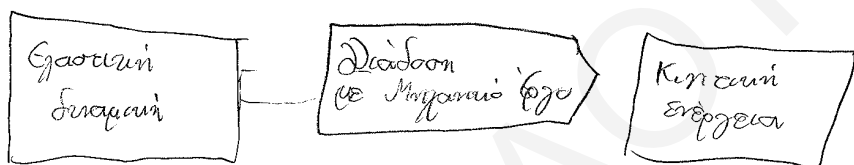 Ελαστική
δυναμική
Διάδοση
με Μηχανικό έργο
Κινητική
ενέργεια